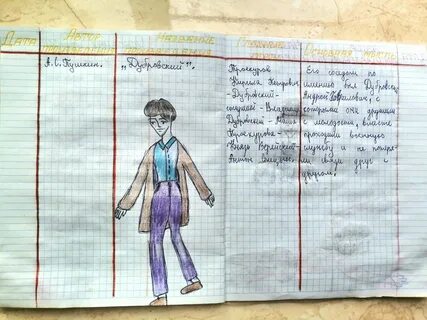 Дата
Автор произведения
Название произведения
Главные герои
Основная мысль
А.С. Пушкин.
„Дубровский".
Троекуров
Кирила Петрович
-Дубровский-
Дубровский - Маша
Троекурова-
Князь Верейский-
Его соседом по
имению был Дубровский
Андрей Гаврилович, с
которым они дружили
с молодости, вместе
проходили военную
службу и не
друг с
другом.